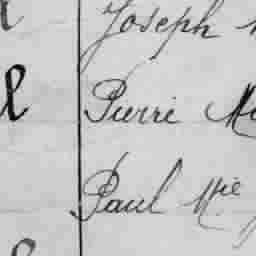 Joseph
Pierre
Paul Mie